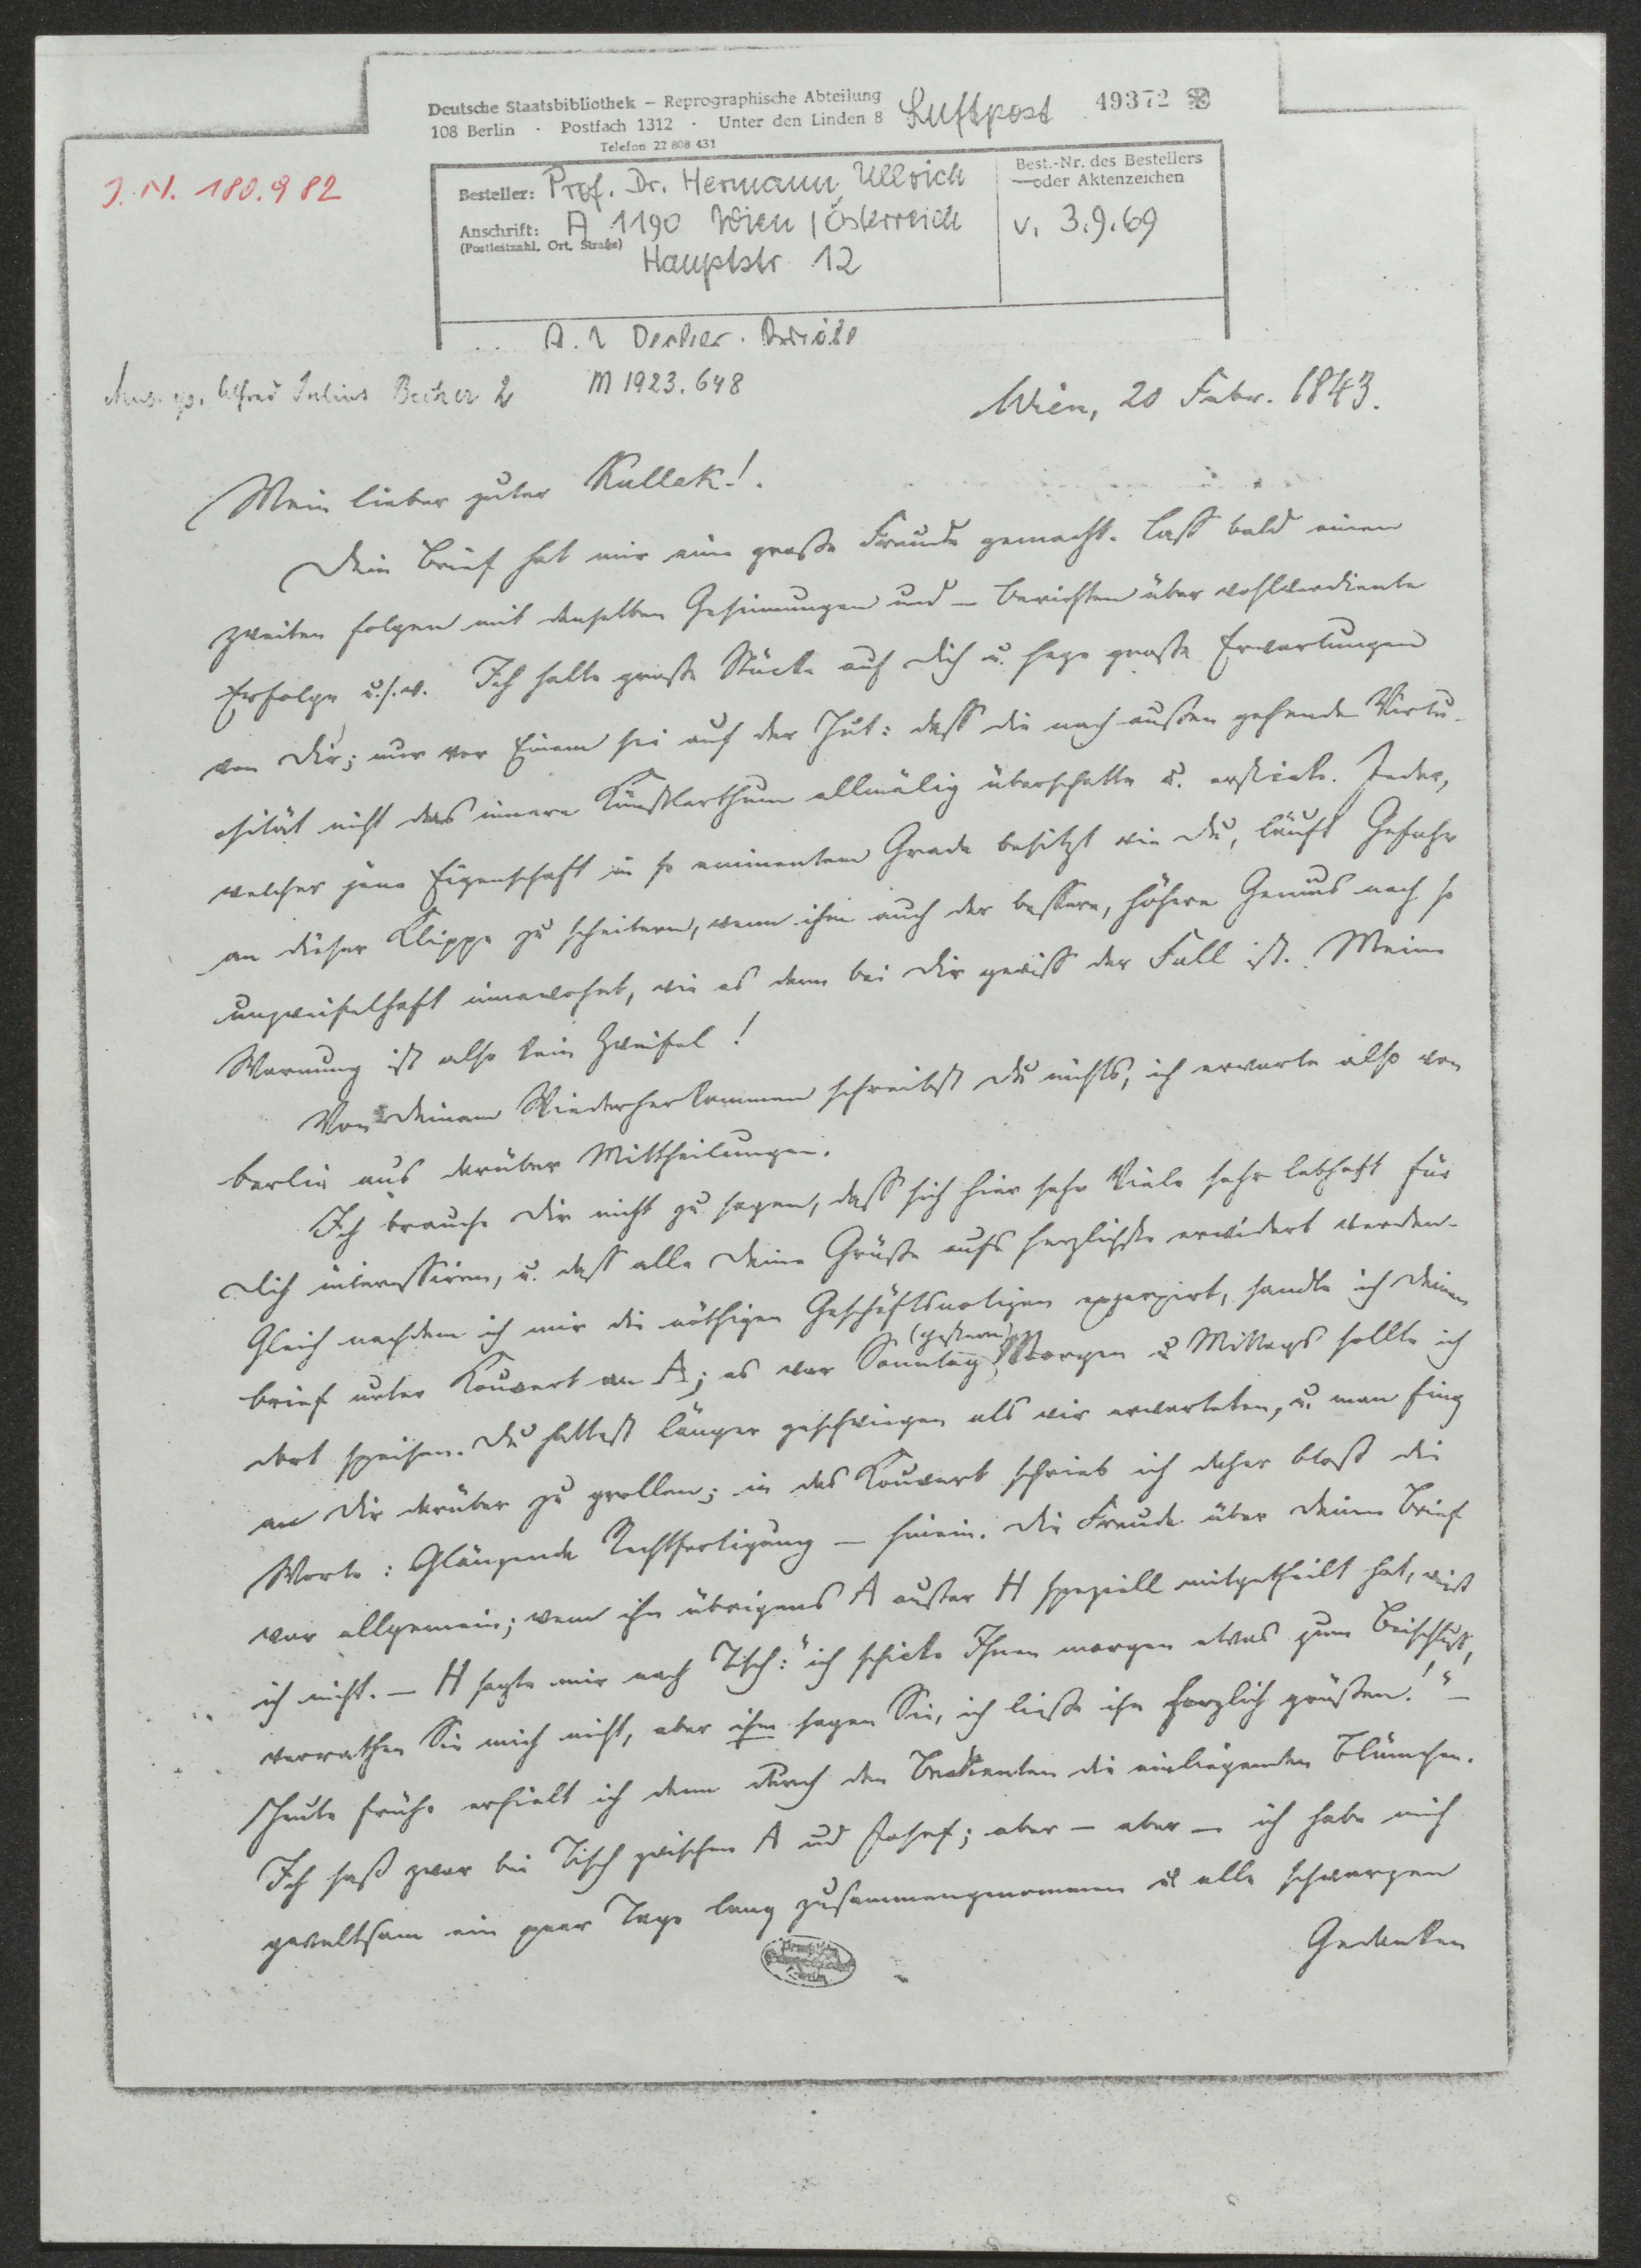 Deutsche Staatsbibliothek – Reprographische Abteilung
108 Berlin · Postfach 1312 · Unter den Linden 8
Telefon 22 808 431
Luftpost
49372
J.N. 180.982
Besteller: Prof. Dr. Hermann Ullrich
Anschrift: A 1190 Wien / Österreich
(Postleitzahl, Ort, Straße)
Hauptstr 12
Best.-Nr. des Bestellers
oder Aktenzeichen
v. 3.9.69
Mus. ep. Alfred Julius Becher 2
M 1923.648
Wien, 20 Febr. 1843.
Mein lieber guter Kullak!
Dein Brief hat mir eine große Freude gemacht. Lass bald einen
zweiten folgen mit denselben Gesinnungen und – Berichten über wohlverdiente
Erfolge u.s.w. Ich halte große Stücke auf Dich u. hege große Erwartungen
von Dir; nur vor Einem sei auf der Hut: dass die nach außen gehende Virtu-
osität nicht das innere Künstlerthum allmälig überschatte u. ersticke. Jeder,
welcher jene Eigenschaft in so eminentem Grade besitzt wie Du, läuft Gefahr
an dieser Klippe zu scheitern, wenn ihm auch der bessere, höhere Genius noch so
unzweifelhaft innewohnt, wie es denn bei Dir gewiss der Fall ist. Meine
Warnung ist also kein Zweifel!
Von Deinem Wiederherkommen schreibst Du nichts, ich erwarte also von
Berlin aus darüber Mittheilungen.
Ich brauche Dir nicht zu sagen, dass sich hier sehr Viele sehr lebhaft für
Dich interessiren, u. dass alle Deine Grüße aufs herzlichste erwidert werden.
Gleich nachdem ich mir die nöthigen Geschäftsnotizen exzerpirt, sandte ich Deinen
Brief unter Kouvert an A; es war Sonntag (gestern) Morgen u Mittags sollte ich
dort speisen. Du hattest länger geschwiegen als wir erwarteten, u. man fing
an Dir darüber zu grollen; in das Kouvert schrieb ich daher bloß die
Worte: Glänzende Rechtfertigung – hinein. Die Freude über Deinen Brief
war allgemein; wem ihn übrigens A außer H speziell mitgetheilt hat, weiß
ich nicht. – H sagte mir nach Tisch: "ich schicke Ihnen morgen etwas zum Beischluß,
verrathen Sie mich nicht, aber ihm sagen Sie, ich ließe ihn herzlich grüßen!" –
Heute frühe erhielt ich denn durch den Bedienten die einliegenden Blümchen.
Ich saß zwar bei Tisch zwischen A und Josef; aber – aber – ich habe mich
gewaltsam ein paar Tage lang zusammengenommen u alle schwarzen
Gedanken